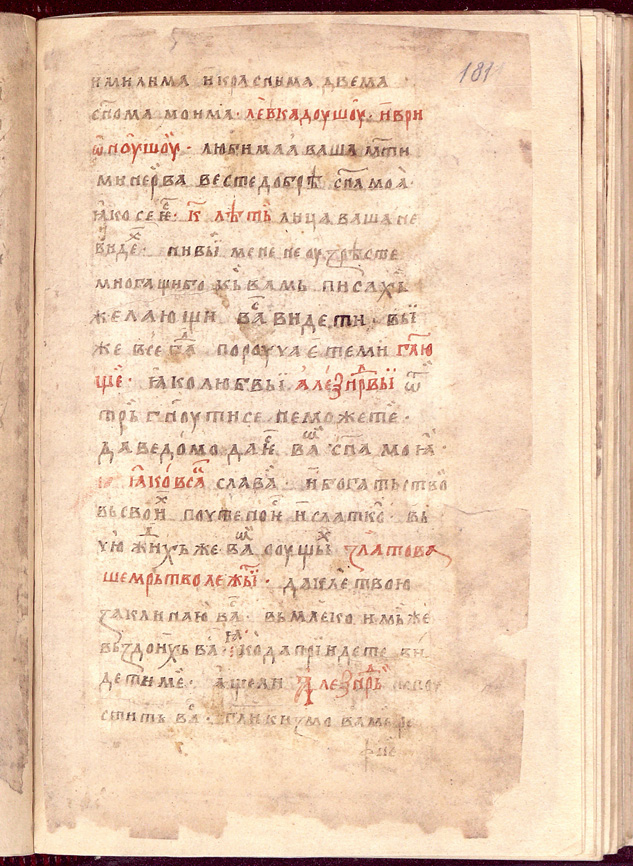 181
и милима и красныма двема
сн҃ома моима · левкадоушоу · и ври
ѡноушоу · любимаа ваша мт҃и
минерва весте добрѣ сн҃а моа ·
ꙗко се к҃ · лѣть лица ваша не
видех · ни вы мене не оузрѣсте
многащи бо къ вамь писахь
желающи вас видети · вы
же все поручаете ми гл҃ю
ще · ꙗко любвы алезанрвы ѿ
трьгноути се не можете ·
да ведомо да е ваш сн҃а моꙗ ·
ꙗко всаш слава · и богатьство
вь своих поуте пон и слатко · вь
чюжних же ваш соущых златова
ше мрьтво лежы · да кле твою
заклинаю ва · вь млеко имьже
вьздоих ва ꙗкода приидете ви
дети ме · аще ли Алезанрь не поу
стить ва ·